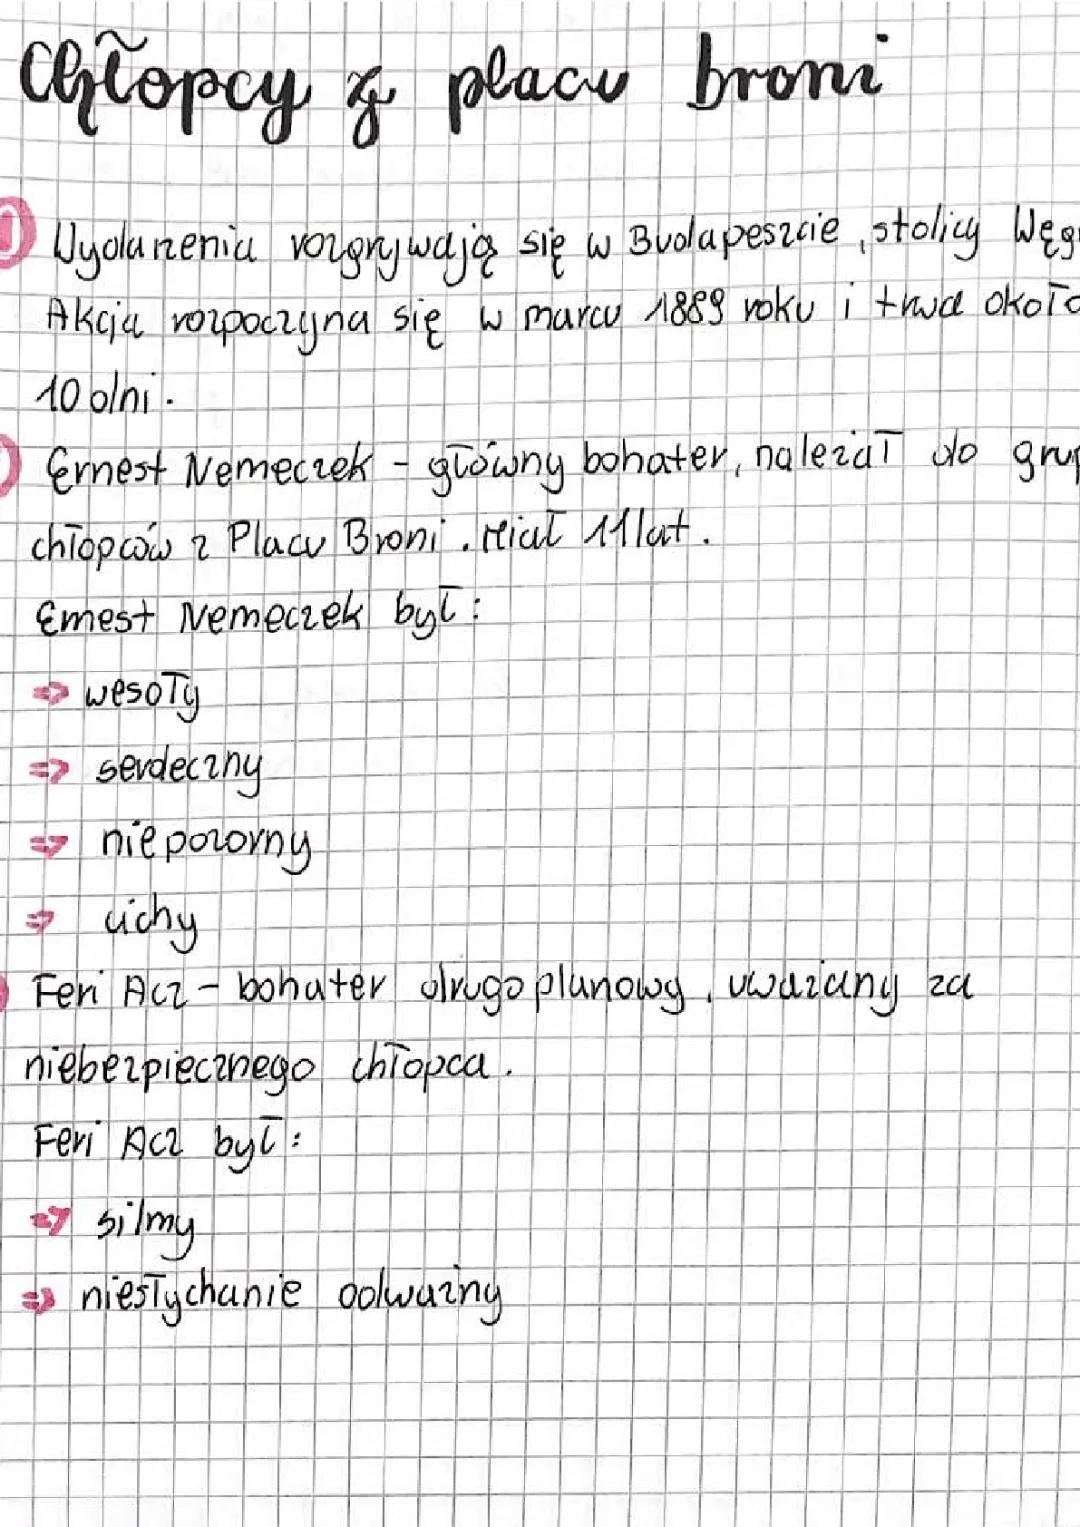 Chłopcy z placu broni
Wydarzenia rozgrywają się w Budapeszcie, stolicy Węg
Akcja rozpoczyna się w marcu 1889 roku i trwa około
10 dni.
Ernest Nemeczek - główny bohater, należał do grup
chłopców z Placu Broni. Miał 11 lat.
Ernest Nemeczek był:
⇒ wesoły
⇒ serdeczny
⇒ niepozorny
⇒ cichy
Feri Acz - bohater drugoplanowy, uważany za
niebezpiecznego chłopca.
Feri Acz był:
⇒ silny
⇒ niesłychanie odważny